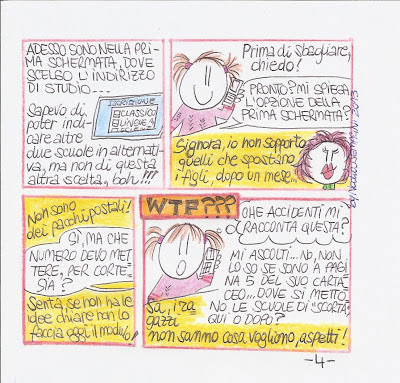 ADESSO SONO NELLA PRI-
MA SCHERMATA, DOVE
SCELGO L'INDIRIZZO
DI STUDIO---
Sapevo di
poter indi-
care altre
due scuole in alternati-
va, ma non di questa
altra scelta, boh!!!
ISCRIZIONE
CLASSICO
LINGUE
Prima di sbagliare,
chiedo!
PRONTO? MI SPIEGA
L'OPZIONE DELLA
PRIMA SCHERMATA?
Signora, io non sopporto
quelli che spostano
i figli, dopo un mese...
Non sono
dei pacchi postali!
SÌ, MA CHE
NUMERO DEVO MET
TERE, PER CORTE-
SIA?
Senta, se non ha le
idee chiare non lo
faccia oggi il modulo!
WTF???
CHE ACCIDENTI MI
RACCONTA QUESTA?
MI ASCOLTI... NO, NON
LO SO SE SONO A PAGI
NA 5 DEL SUO CARTA
CEO... DOVE SI METTO
NO LE SCUOLE DI "SCORTA"
QUI O DOPO?
Sa, i ra
gazzi
non sanno cosa vogliono, aspetti!
-4-